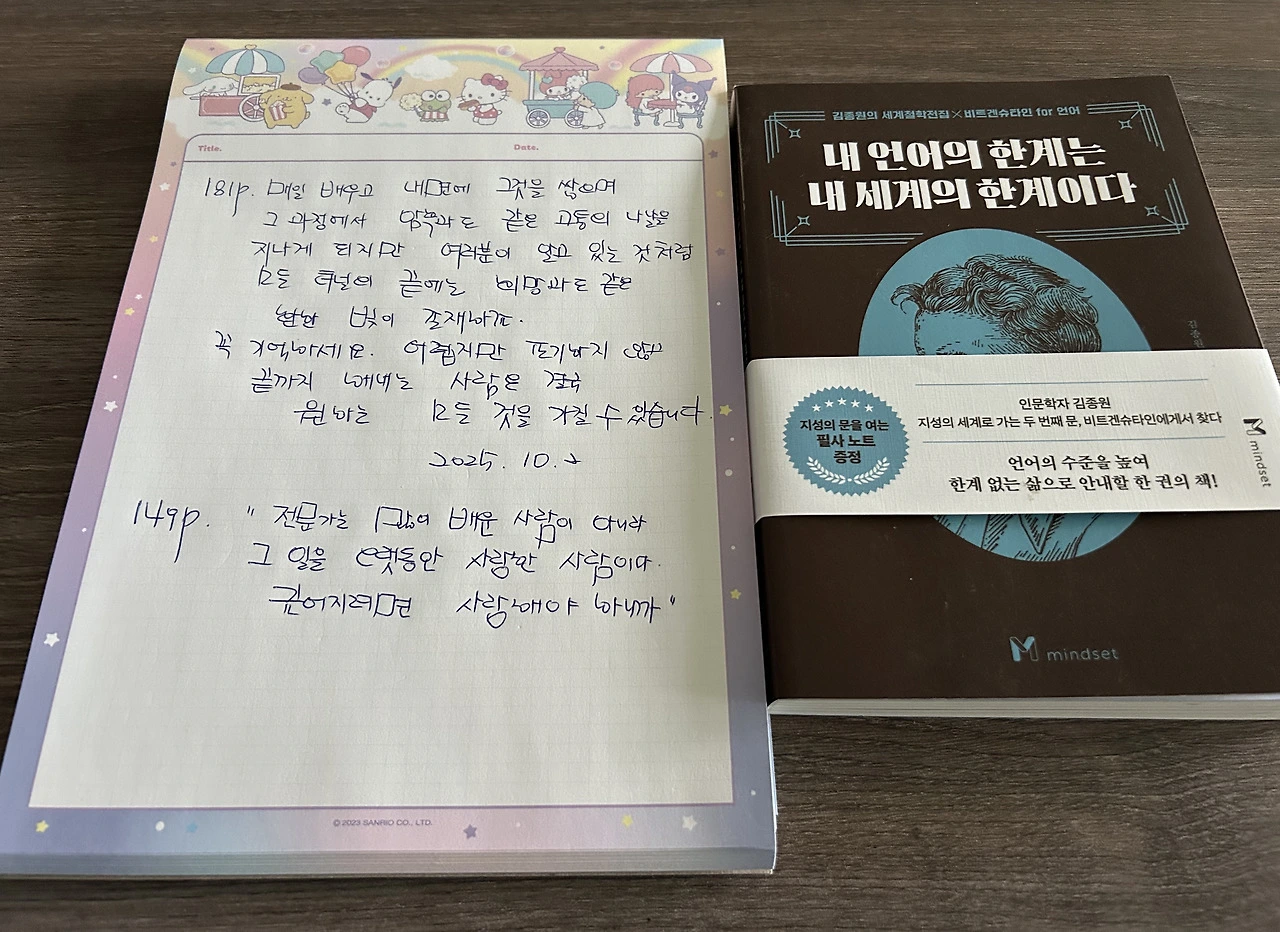 Title.
Date.
181p. 매일 배우고 내면에 그것을 쌓으며
그 과정에서 암흑과도 같은 고통의 나날을
지나게 되지만 여러분이 알고 있는 것처럼
모든 터널의 끝에는 희망과도 같은
환한 빛이 존재하죠.
꼭 기억하세요. 어렵지만 포기하지 않고
끝까지 해내는 사람은 결국
원하는 모든 것을 가질 수 있습니다.
2025. 10. 2
149p. " 전문가는 많이 배운 사람이 아니라
그 일을 오랫동안 사랑한 사람이다.
깊어지려면 사랑해야 하니까"
© 2023 SANRIO CO., LTD.
김종원의 세계철학전집×비트겐슈타인 for 언어
내 언어의 한계는
내 세계의 한계이다
김종원
지성의 문을 여는
필사 노트
증정
인문학자 김종원
지성의 세계로 가는 두 번째 문, 비트겐슈타인에게서 찾다
언어의 수준을 높여
한계 없는 삶으로 안내할 한 권의 책!
mindset
mindset